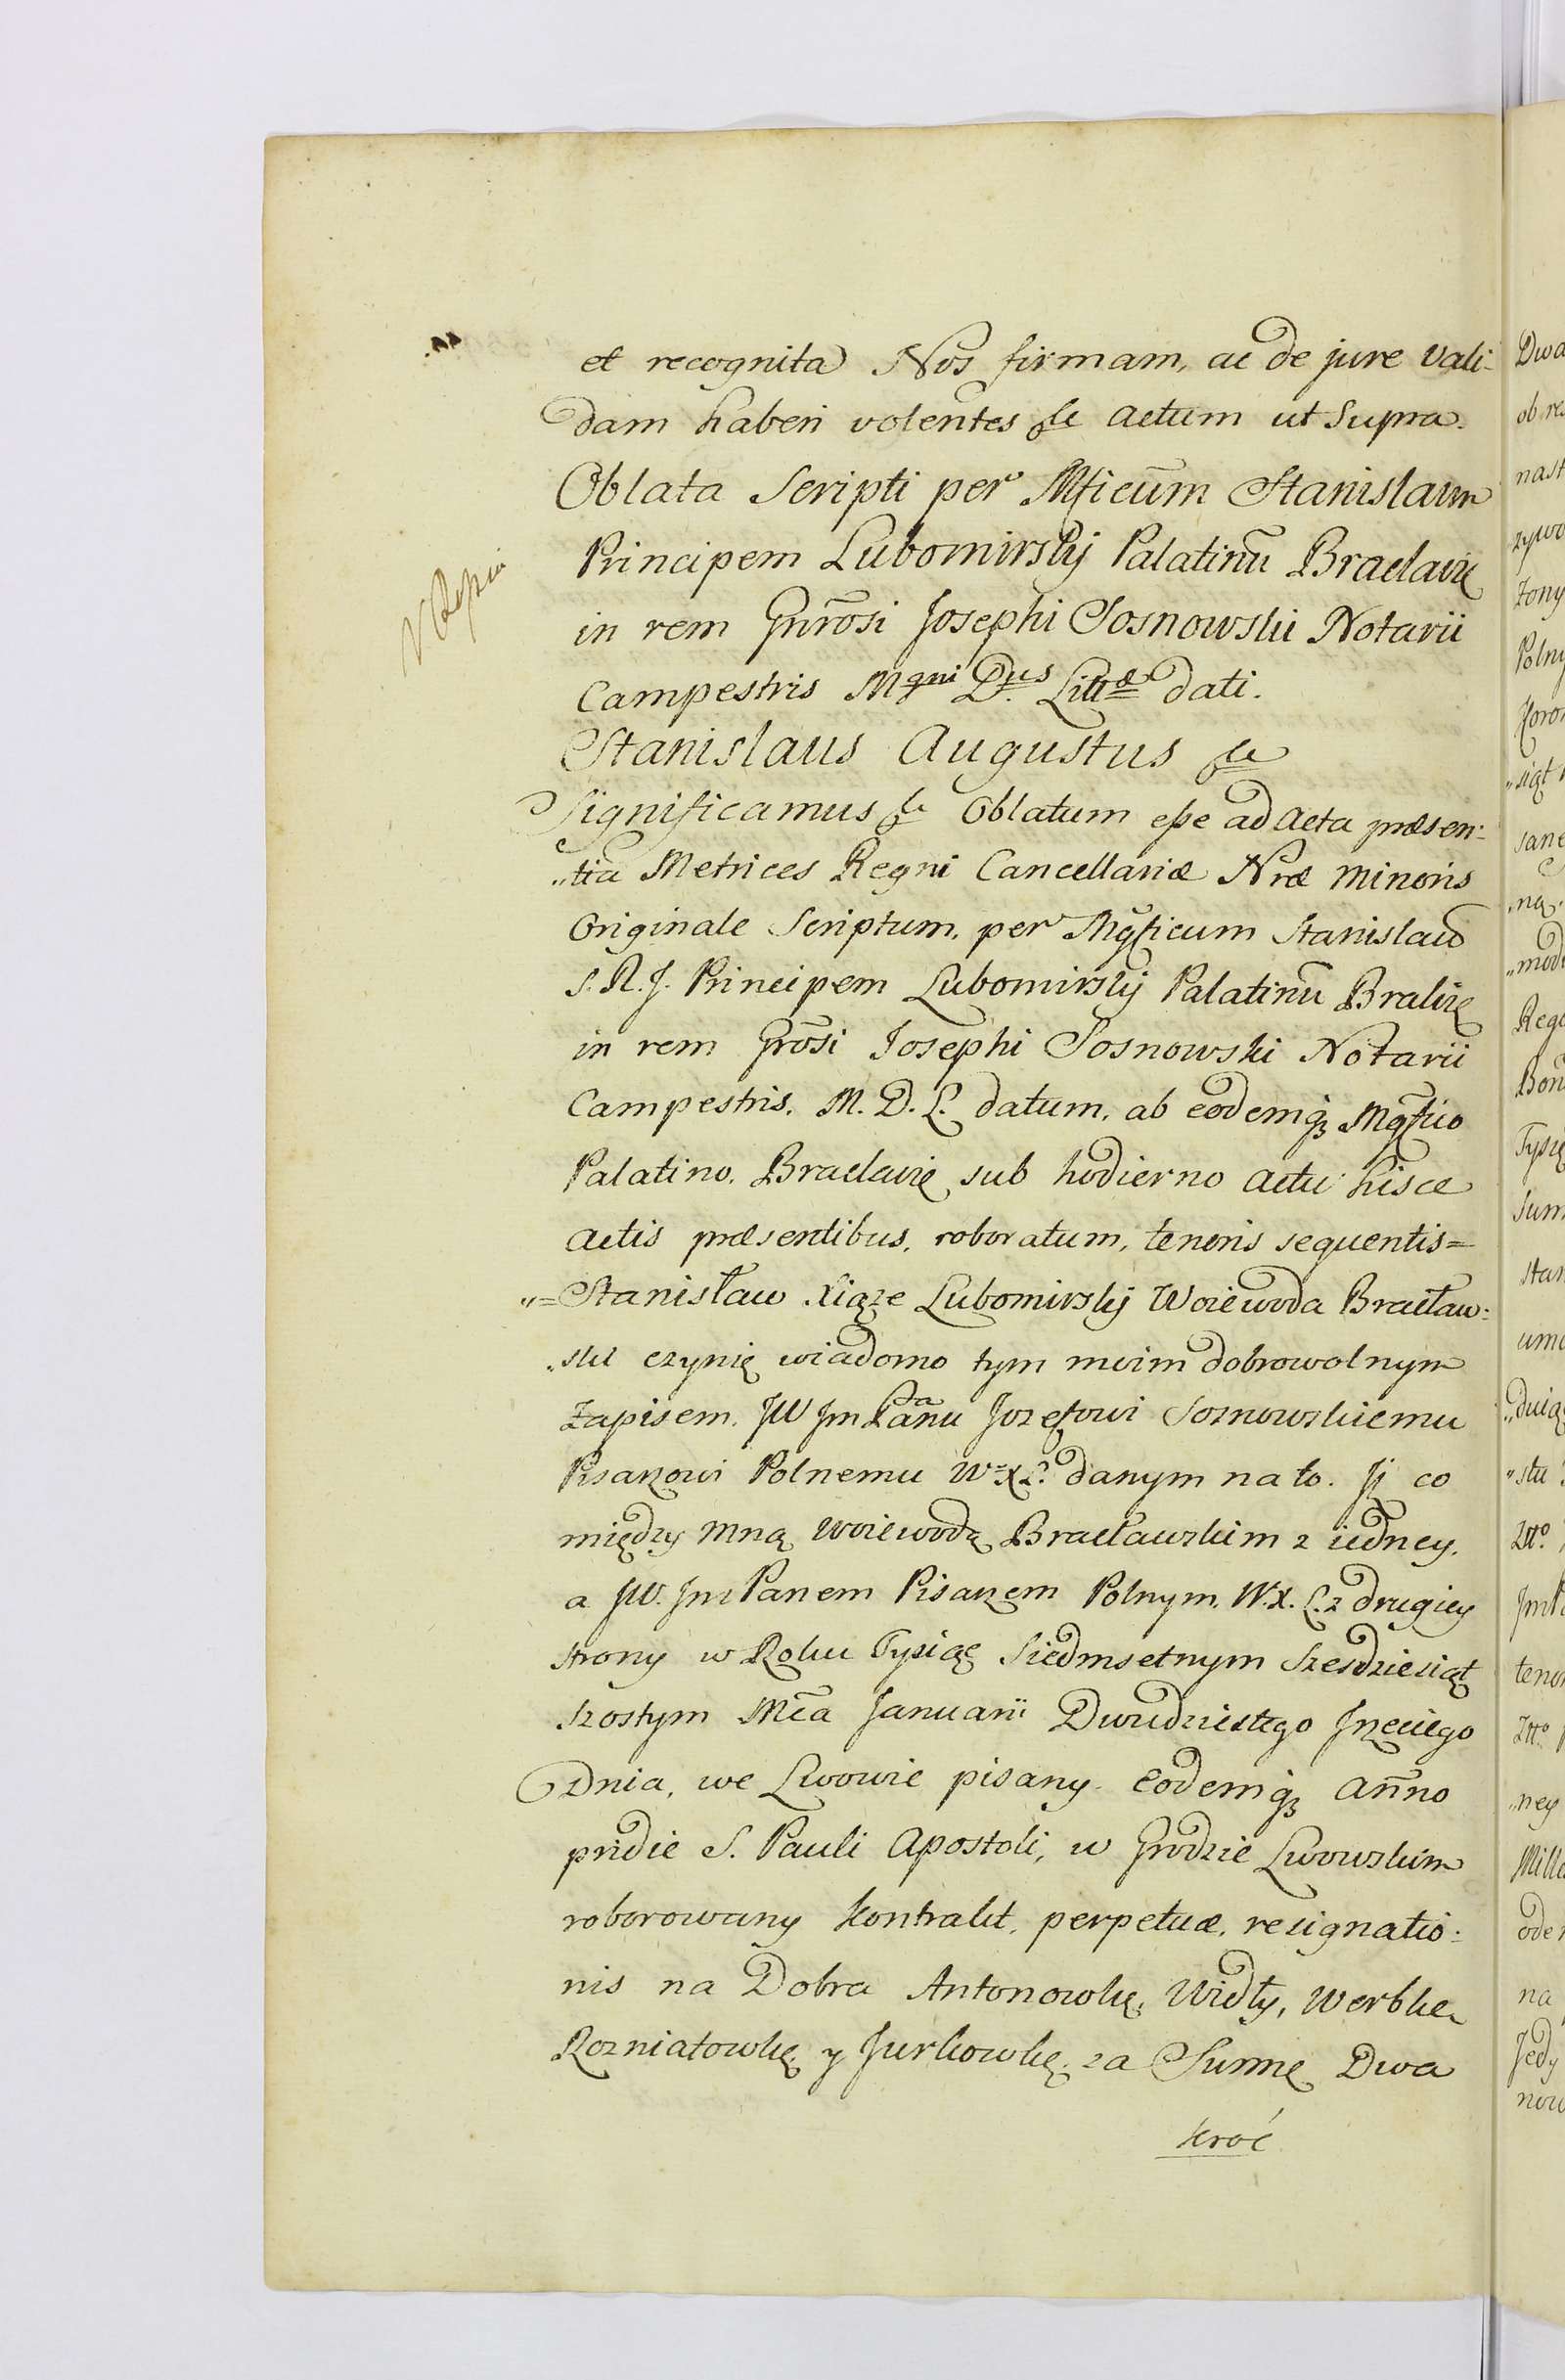 et recognita Nos firmam, ac de jure vali-
dam haberi volentes &c actum ut supra.
Oblata Scripti per Mficum Stanislaum
Principem Lubomirsky Palatinu Braclavię
in rem Gnrosi Josephi Sosnowski Notarii
Campestris Mgni Dus Littæ dati.
Stanislaus Augustus &c
Significamus &c Oblatum esse ad Acta præsen-
„tia Metrices Regni Cancellariæ Nræ Minoris
Originale Scriptum, per Mgficum Stanislau
S. R. J. Principem Lubomirsky Palatinu Bralvię
in rem Grosi Josephi Sosnowski Notarii
Campestris. M. D. L. datum, ab eodemq3 Mgfico
Palatino. Braclavię sub hodierno actu hisce
actis præsentibus, roboratum, tenoris sequentis=
„=Stanisław Xiąze Lubomirsky Woiewoda Bracław-
„ski czynię wiadomo tym moim dobrowolnym
Zapisem. JW Jm Panu Jozefowi Sosnowskiemu
Pisarzowi Polnemu W X L. danym na to. Jż co
między mną Woiewodą Bracławskim z iedney,
a JW. Jm Panem Pisarzem Polnym. W. X. L. z drugiey
strony w Roku Tysiąc Siedmsetnym Szesdziesiąt
szostym Mca Januarii Dwudziestego Trzeciego
Dnia, we Lwowie pisany. Eodemq3 Anno
pridie S. Pauli Apostoli, w Grodzie Lwowskim
roborowany kontrakt, perpetuæ, resignatio-
nis na Dobra Antonowkę, Widły, Werbke
Rozniatowkę y Jurkowkę, za Summę Dwa
kroć